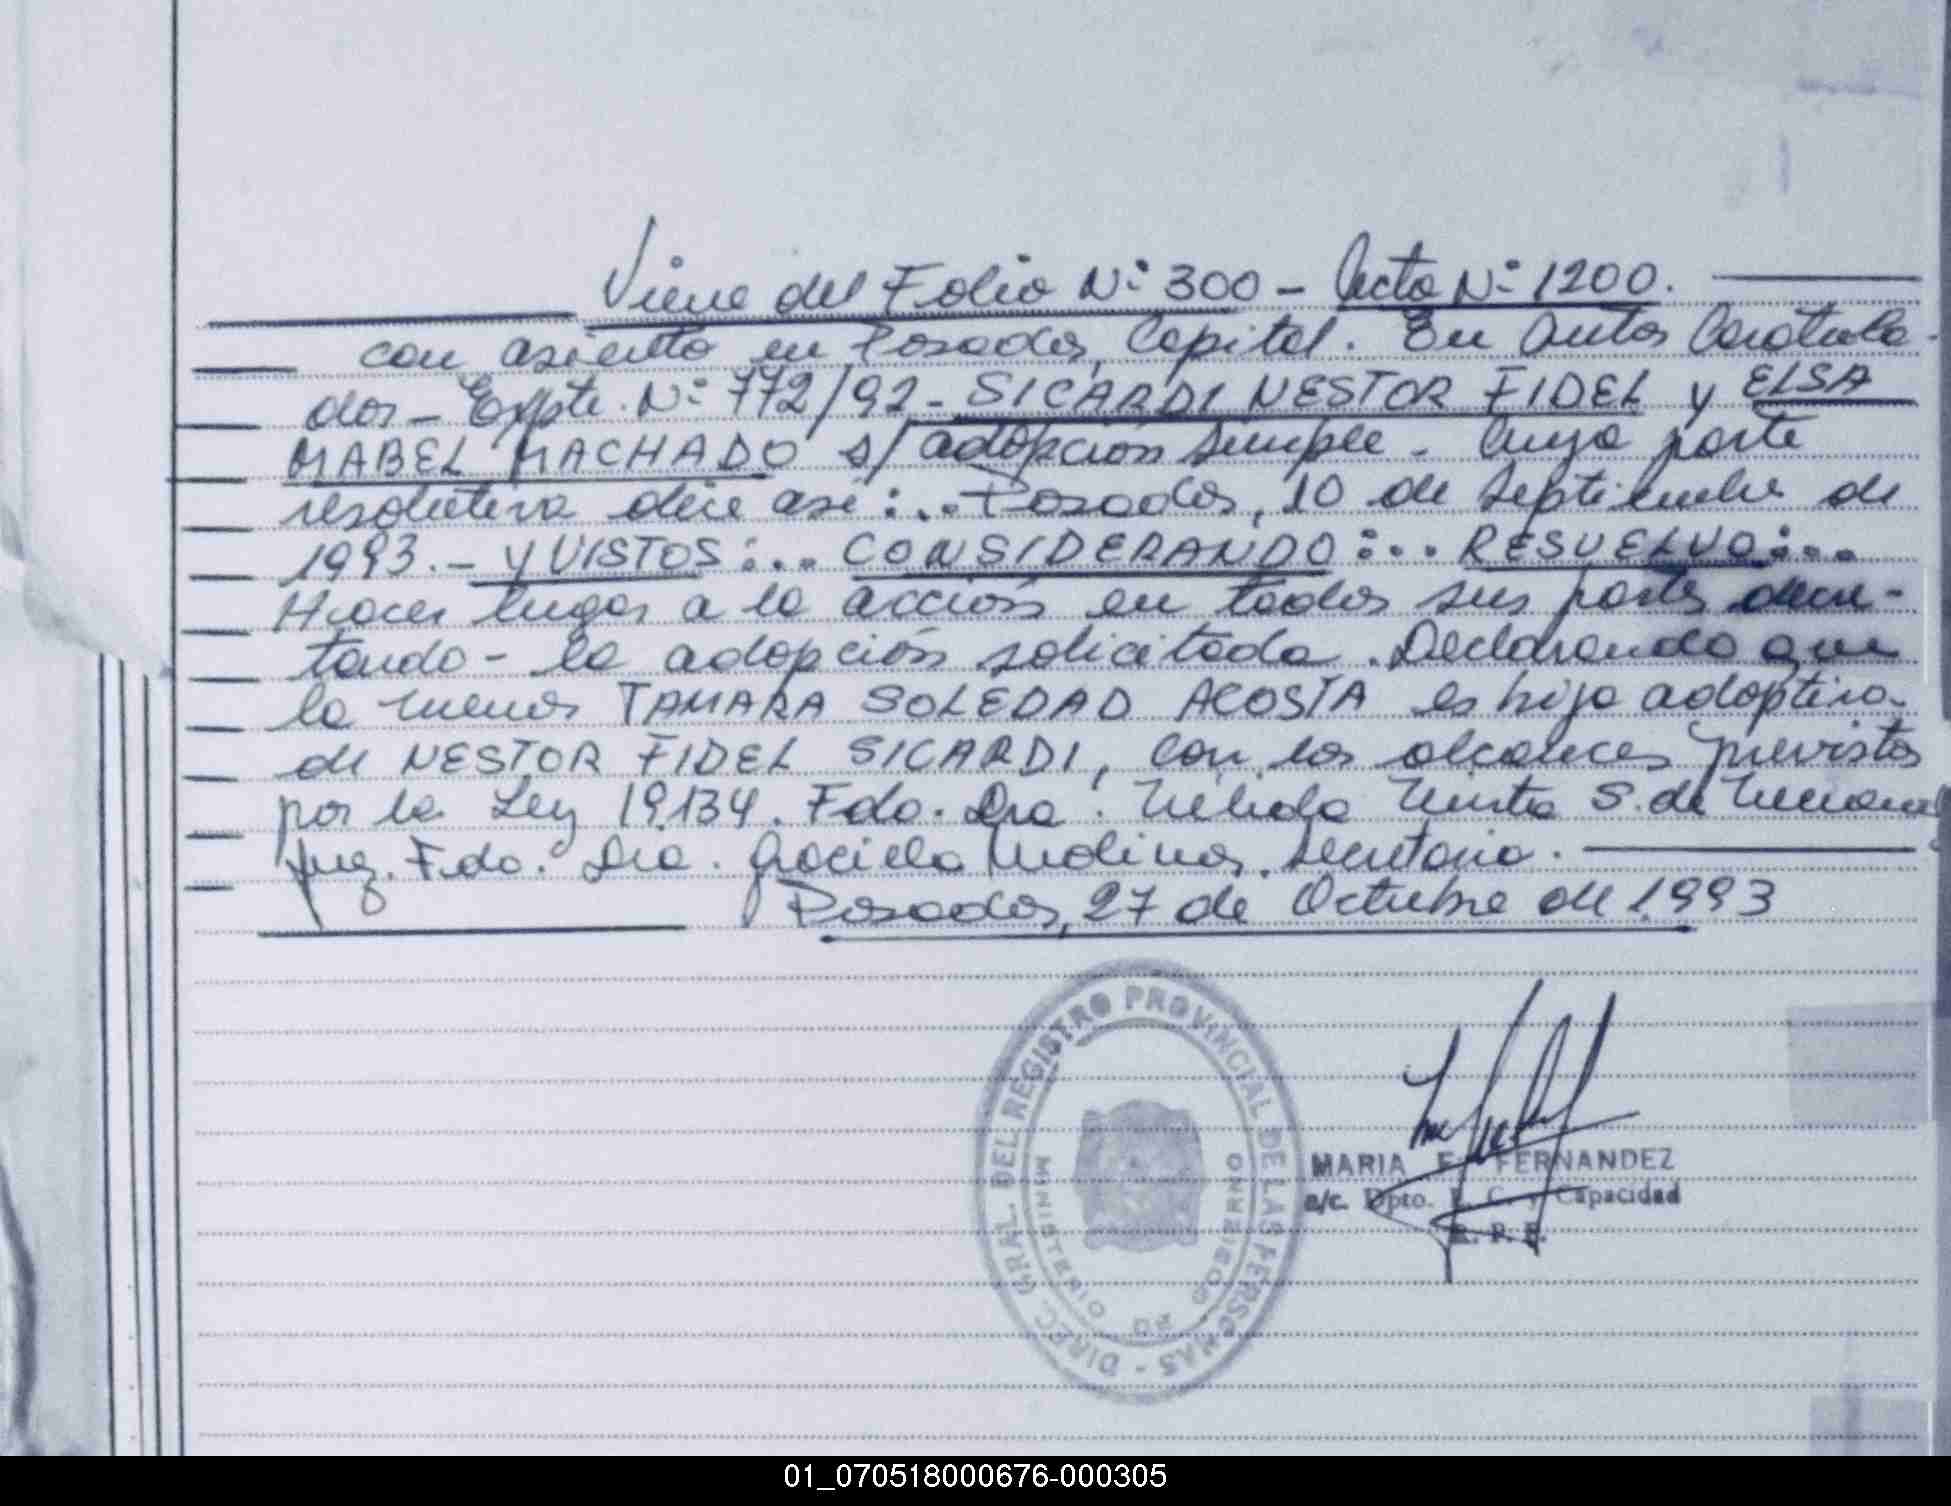 Viene del Folio Nº 300 - Acta Nº 1200.
con asiento en Posadas, Capital. En Autos Caratula-
dos - Expte. Nº 772/92 - SICARDI NESTOR FIDEL y ELSA
MABEL MACHADO s/ adopción simple - Cuya parte
resolutiva dice así:... Posadas, 10 de Septiembre de
1993. - Y VISTOS:... CONSIDERANDO:... RESUELVO:...
Hacer lugar a la acción en todas sus partes decre-
tando - la adopción solicitada. Declarando que
la menor TAMARA SOLEDAD ACOSTA es hija adoptiva
de NESTOR FIDEL SICARDI, con los alcances previstos
por la Ley 19134. Fdo. Dra. S. de
Juez. Fdo. Dra. Graciela Molinas. Secretaria.
Posadas, 27 de Octubre de 1993
DIREC. GRAL. DEL REGISTRO PROVINCIAL DE LAS PERSONAS -
MINISTERIO DE GOBIERNO
MARIA E. FERNANDEZ
a/c. Dpto. E. C. y Capacidad
R. P. P.
01_070518000676-000305